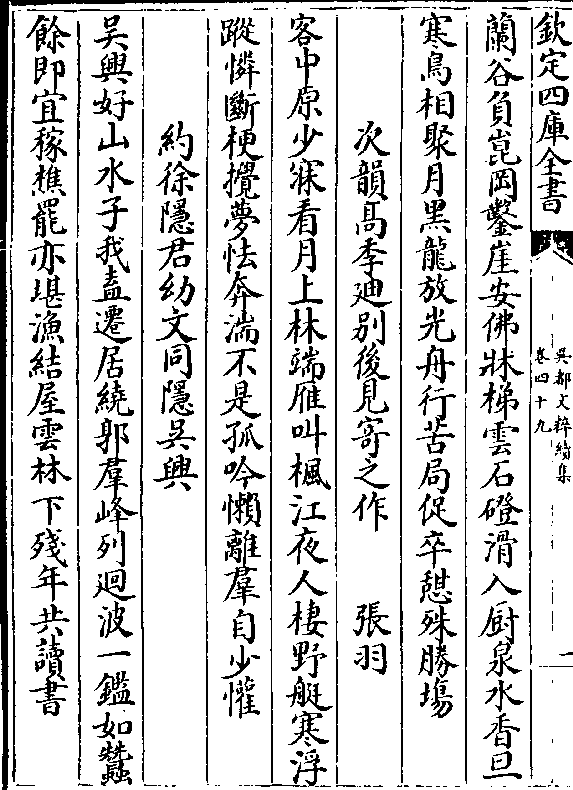 欽定四庫全書
吳都文粹續集
卷四十九
一
蘭谷負崑岡鑿崖安佛牀梯雲石磴滑入厨泉水香旦
寒鳥相聚月黑龍放光舟行苦局促卒憇殊勝塲
次韻髙季廸别後見寄之作 張羽
客中原少寐看月上林端雁叫楓江夜人棲野艇寒浮
蹤憐斷梗攪夢怯奔湍不是孤吟懶離羣自少懽
約徐隱君幼文同隱吳興
吳興好山水子我盍遷居繞郭羣峰列迴波一鑑如蠶
餘即宜稼樵罷亦堪漁結屋雲林下殘年共讀書